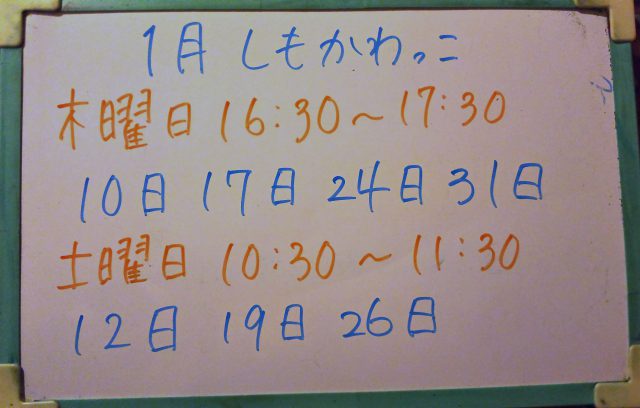 1月 しもかわっこ
木曜日 16:30~17:30
10日 17日 24日 31日
土曜日 10:30~11:30
12日 19日 26日